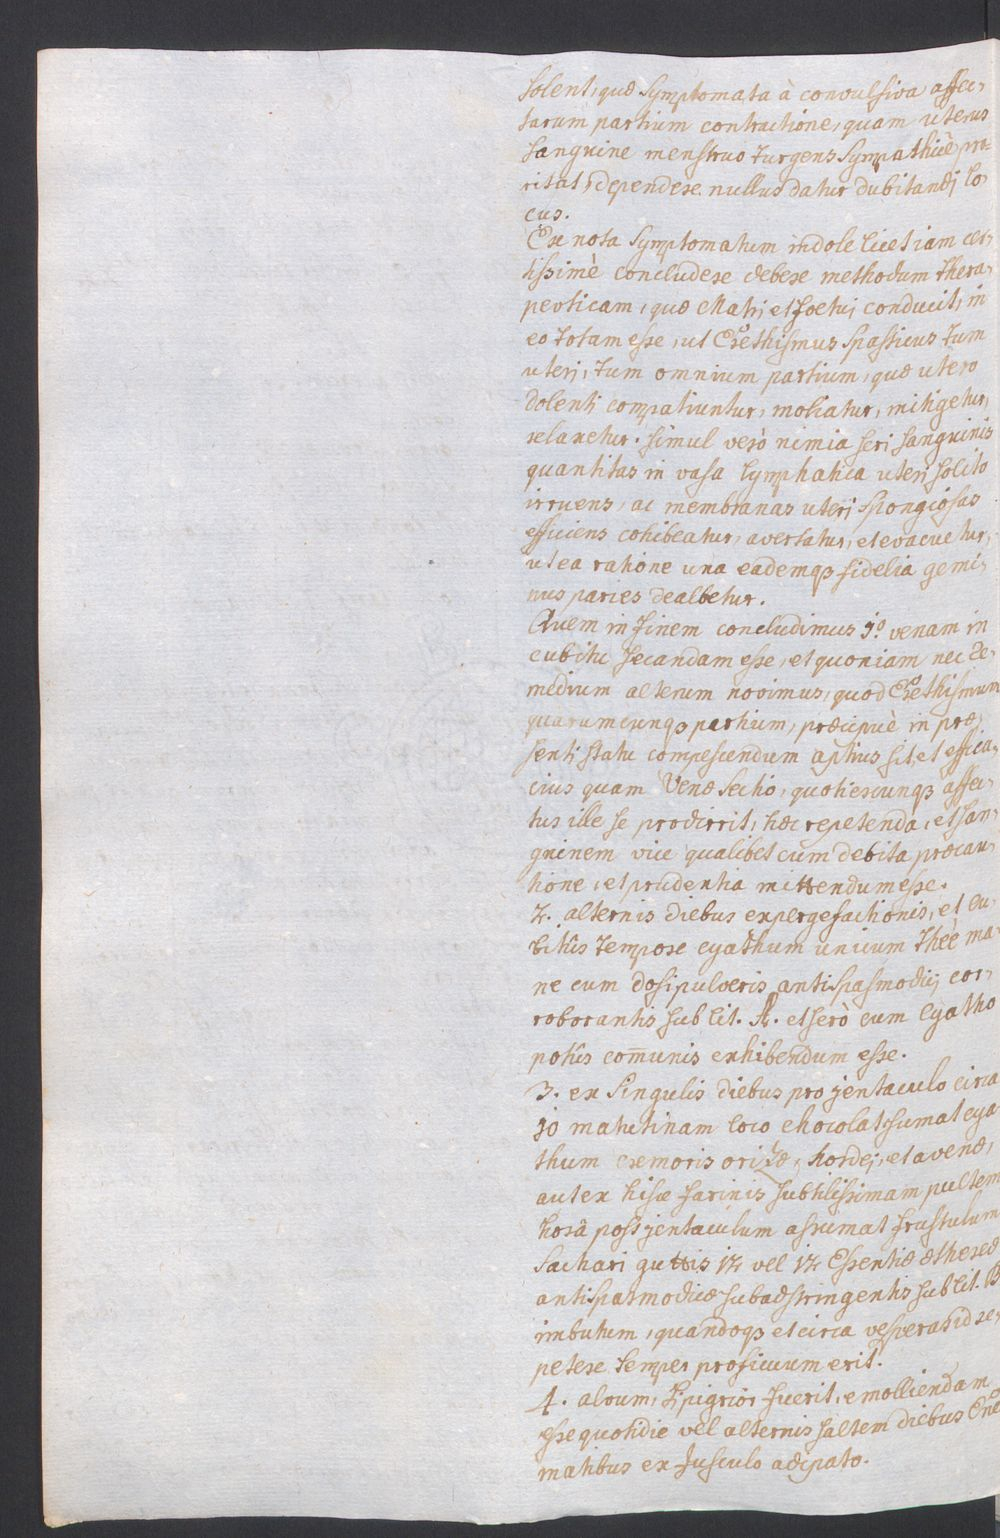 solent, quæ Symptomata à convulsiva affec-
tarum partium contractione, quam uterus
sanguine menstruo turgens Sympathicè pro-
ritat, dependere nullus datur dubitandj lo-
cus.
Ex nota Symptomatum indole licet iam cer-
tissimè concludere debere methodum thera-
peoticam, quæ Matrj et foetuj conducit, in
eo totam esse, ut Erethismus Spasticus tum
uterj, tum omnium partium, quæ utero
dolentj compatiuntur, moliatur, mitigetur,
relaxetur. simul verò nimia seri sanguinis
quantitas in vasa lymphatica uterj solito
irruens, ac membranas uterj spongiosas
efficiens cohibeatur, avertatur, et evacuetur,
ut ea ratione una eademqȝ fidelia gemi-
nus paries dealbetur.
Quem in finem concludimus 1.º venam in
cubitu secandam esse, et quoniam nec Re-
medium alterum novimus, quod Erethismum
quarumcunqȝ partium, præcipuè in præ-
sentj statu compescendum aptius sit, et effica-
cius quam Venæ sectio, quotiescunqȝ affec-
tus ille se prodierit, hæc repetenda, et san-
guinem vice qualibet cum debita præcau-
tione, et prudentia mittendum esse.
2. alternis diebus expergefactionis, et cu-
bitûs tempore cyathum unicum theè ma-
ne cum dosi pulveris antispasmodicj cor-
roborantis sub lit. A. et serò cum Cyatho
potûs com̅unis exhibendum esse.
3. ex singulis diebus pro jentaculo circa
10 matutinam loco chocolat, sumat cya-
thum cremoris orizæ, hordej, et avenæ,
aut ex hisce farinis subtilissimam pultem
horâ post jentaculum assumat frustulum
Sachari guttis 12 vel 12 Essentiæ æthereæ
antispasmodicæ subadstringentis sub lit. B
imbutum, quandoqȝ et circa vesperas id re-
petere semper proficuum erit.
4. alvum, si pigrior fuerit, emolliendam
esse quotidie vel alternis saltem diebus Ene-
matibus ex Jusculo adipato.